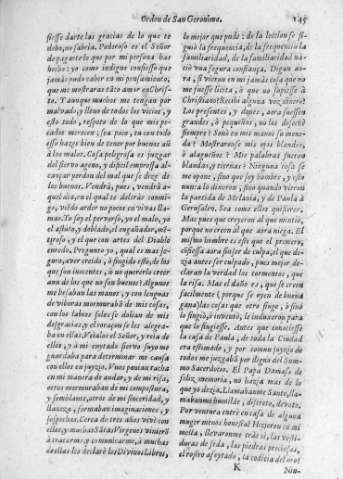 Orden de San Geronimo. 145
siesse darte las gracias de lo que te
debo, no sabria. Poderoso es el Señor
de pagarte lo que por mi persona has
hecho: yo como indigno confiesso que
jamàs pudo caber en mi pensamiento,
que me mostraras tãto amor en Christo.
Y aunque muchos me tengan por
malvado, y lleno de todos los vicios, y
esto todo, respeto de lo que mis pecados
merecen, sea poco, tu con todo
esso hazes bien de tener por buenos aũ
à los malos. Cosa peligrosa es juzgar
del siervo ageno, y dificil
perdon del mal que se dixo de
los buenos. Vendrà, pues, vendrà aquel
dia, en el qual te dolerás conmigo,
viẽdo arder no pocos en vivas llamas.
Yo soy el perverso, yo el malo, yo
el astuto, y doblado, el engañador, mẽtiroso,
y el que con artes del Diablo
enredo. Pregunto yo, qual es mas seguro,
aver creido, ò fingido esto, de los
que son innocentes, ò no quererlo creer
aun de los que no son buenos? Algunos
me besaban las manos, y con lenguas
de vibora murmuraban de mis cosas,
con los labios se dolian de mis
desgracias, y el coraçon se les alegraba
en ellas. Veialos el Señor, y reia de
ellos, y à mi cuytado siervo suyo me
guardaba para determinar me causa
con ellos en juyzio. Vnos ponian tacha
en mi manera de andar, y de mi risa,
otros murmuraban de mi compostura,
y semblante, otros de mi sinceridad, y
llaneza, formaban imaginaciones, y
sospechas. Cerca de tres años vivi con
ellos, y muchas Sãtas Virgenes vinierõ
à tratarme, y comunicarme, à muchas
de ellas les declarè los Divinos Libros,
lo mejor que pude: de la leccion se siguiò
la frequencia, de la frequencia la
familiaridad, de la familiaridad naciò
vna segura confiança. Digan aora,
si vieron en mi jamàs cosa que no
me fuesse licita, ò que no supiesse à
Christiano? Recibi alguna vez dinero?
Los presentes, y dones, aora fuessen
grandes, ò pequeños, no los desechè
siempre? Sonò en mi mano su moneda?
Mostraronse mis ojos blandos,
ò alagueños? Mis palabras fueron
blandas, ò tiernas? Ninguna cosa se
me opone, sino que soy hombre, y esto
nunca lo dixeron, sino quando vieron
la partida de Melania, y de Paula à
Gerusalen. Sea como ellos quisieren.
Mas pues que creyeron al que mentia,
porque no creen al que aora niega. El
mismo hombre es este que el primero,
cõfiessa aora sin ser de culpa, el que dezia
antes ser culpado, pues mejor declaran
la verdad los tormentos, que
la risa. Mas el daño es, que se creen
facilmente (porque se oyen de buena
gana) las cosas que otro finge, ò sino
lo fingiò, è intentò, le induzeron para
que lo fingiesse. Antes que conociesse
la casa de Paula, de toda la Ciudad
era estimado, y por comun juyzio de
todos me juzgabã por digno del Summo
Sacerdocio. El Papa Damaso de
feliz memoria, no hazia mas de lo
que yo dezia. Llamabanme Santo, llamabanme
humilde, discreto, devoto.
Por ventura entrè en casa de alguna
muger menos honesta?
llevaronme tràs si, las vestiduras
de seda, las piedras preciosas,
el rostro afeytado, la codicia del oro?
K Nin-